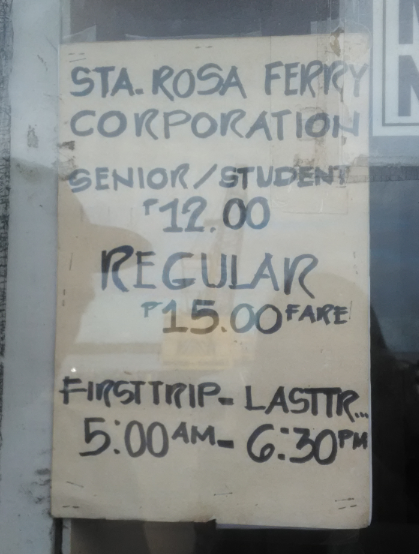 STA. ROSA FERRY
CORPORATION
SENIOR/STUDENT
₱12.00
REGULAR
₱15.00 FARE
FIRST TRIP - LAST TR...
5:00 AM - 6:30 PM